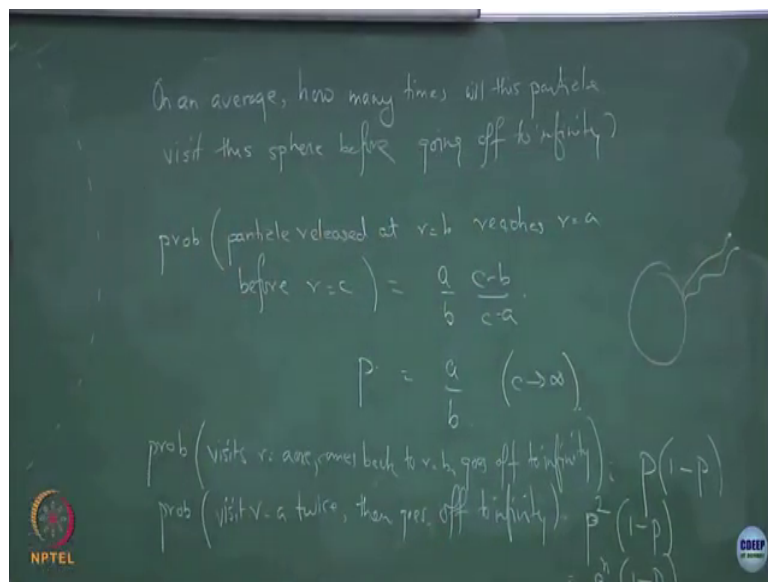 On an average, how many times will this particle
visit this sphere before going off to infinity?
prob (particle released at r=b reaches r=a
before r=c) = a/b c-b/c-a.
P = a/b (c→∞)
prob (visits r=a once, comes back to r=b, goes off to infinity). P(1-P)
prob (visit r=a twice, then goes off to infinity). P²(1-P)
NPTEL
CDEEP